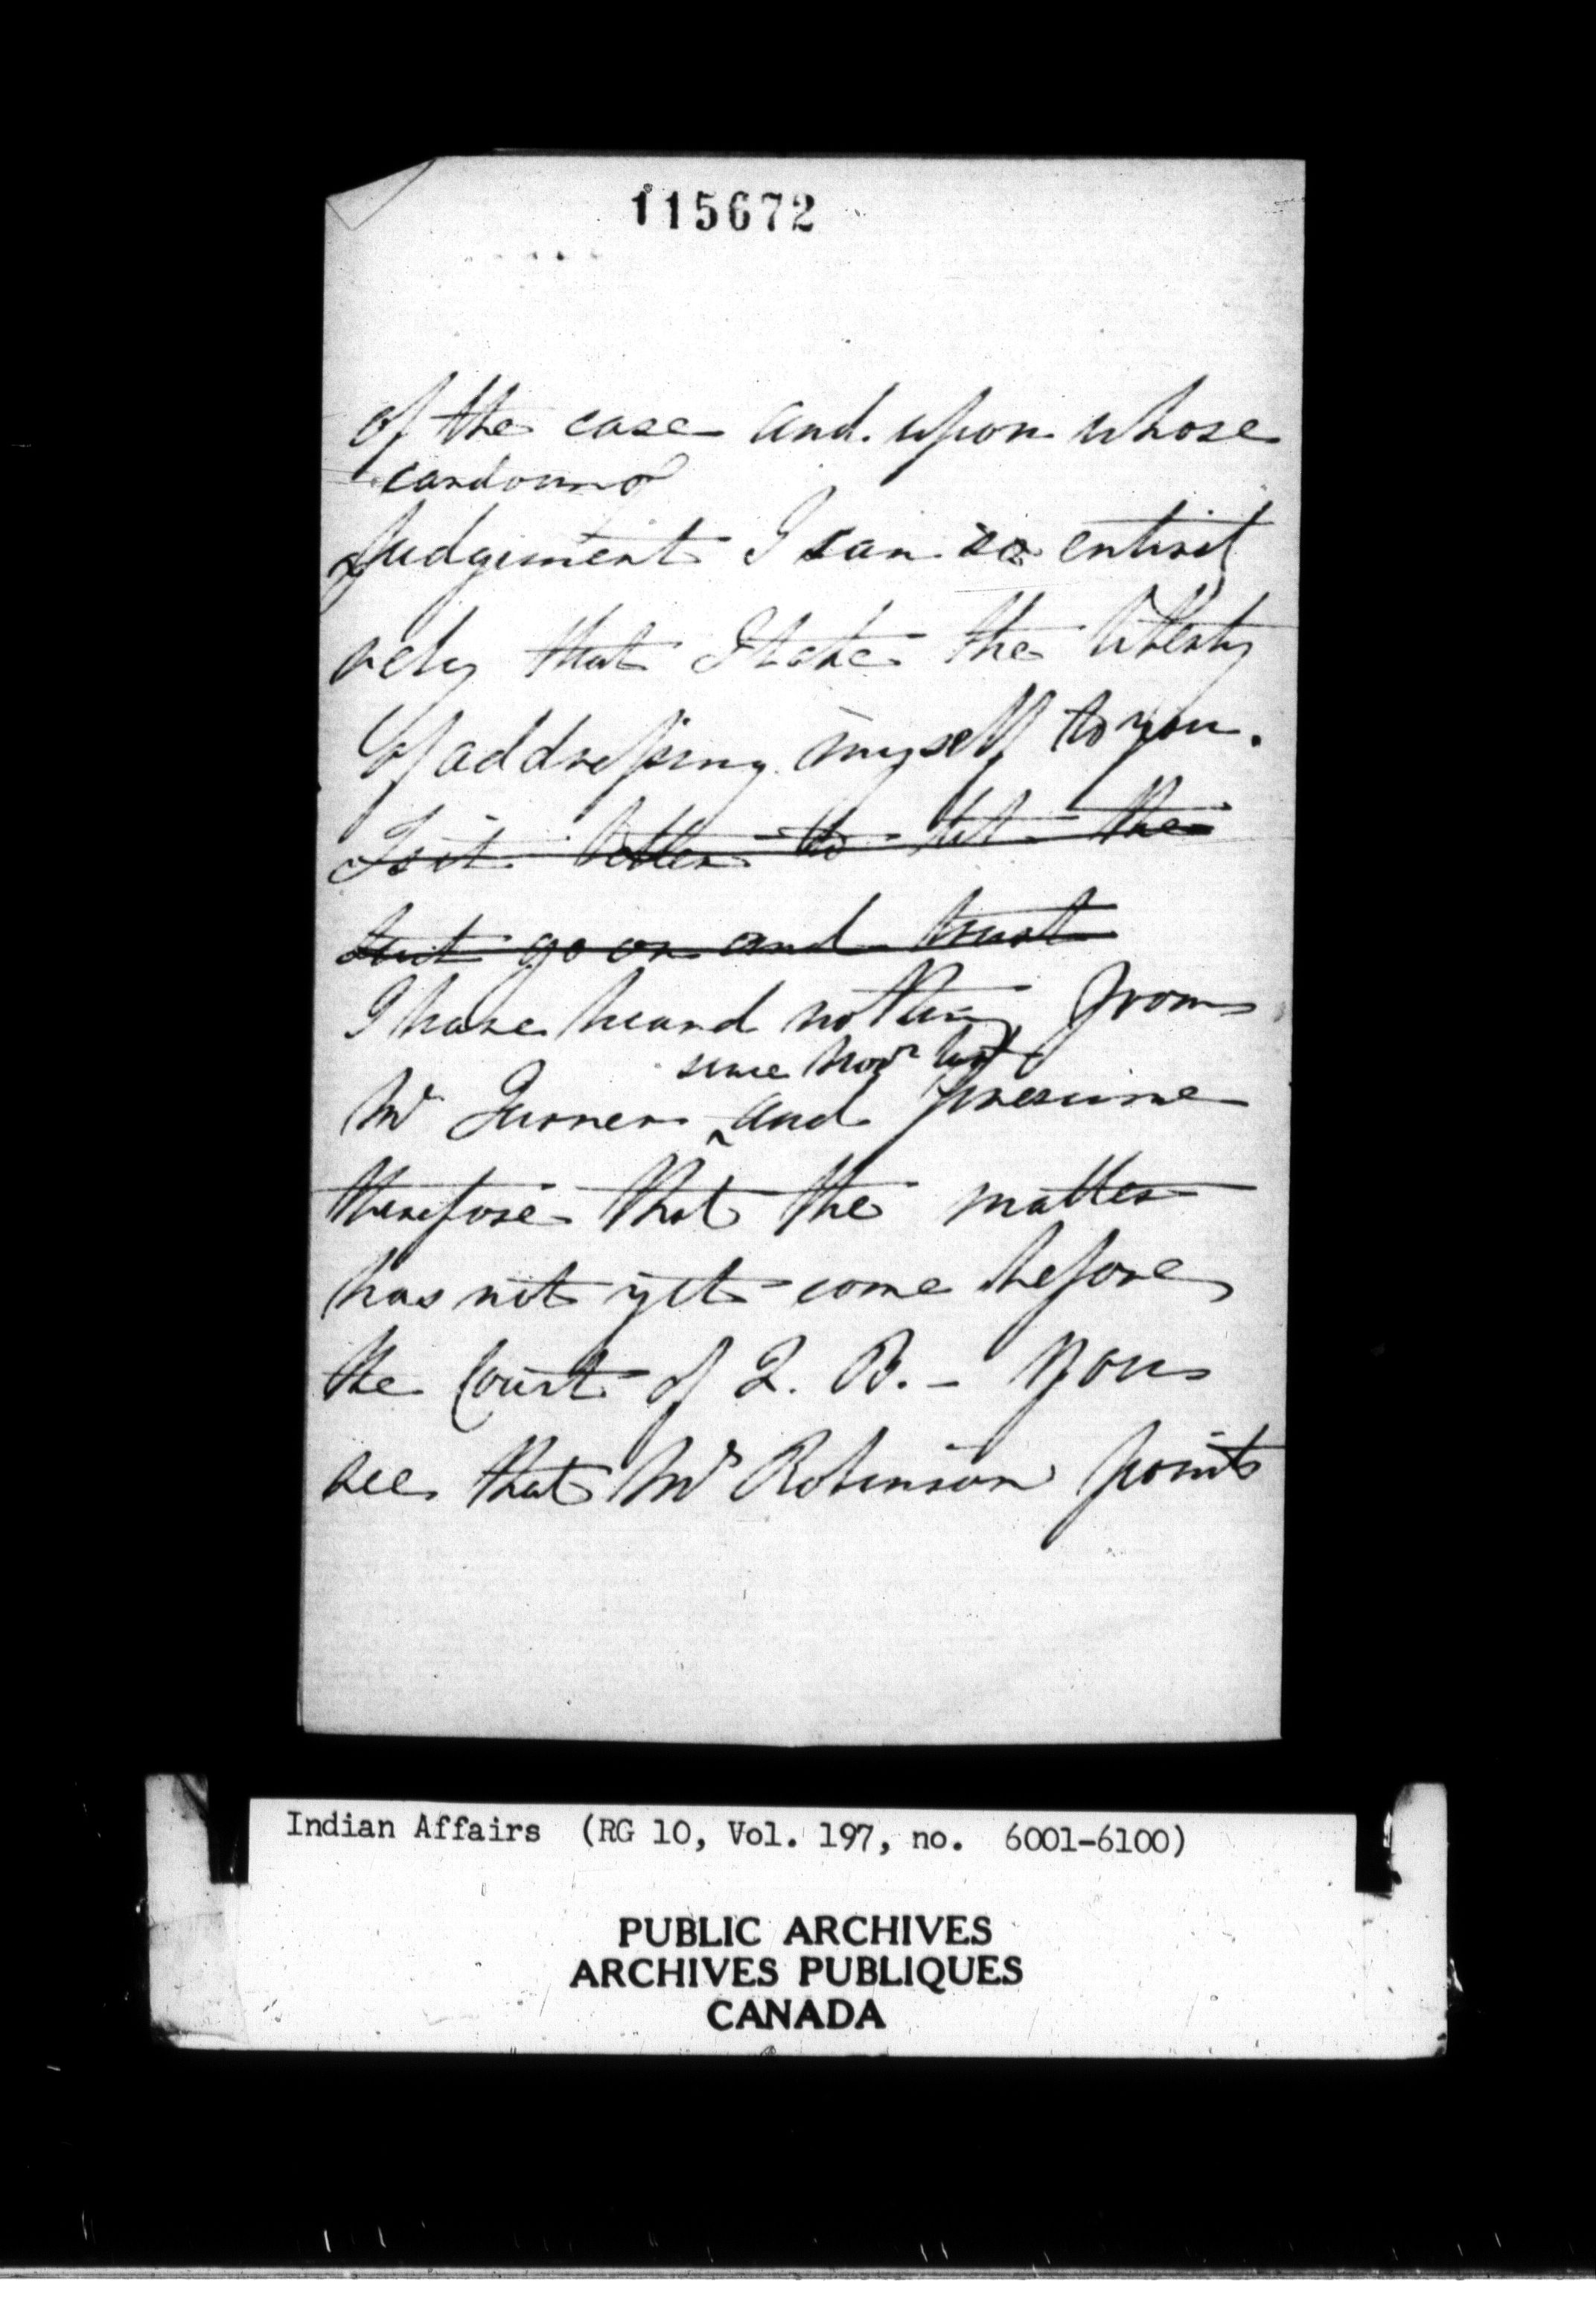 115672
of the case and upon whose
candour &
Judgement I can so entirely
rely that I take the liberty
of addressing myself to you.
Is it better to let the
suit go on and trust
I have heard nothing from
since Novr last
Mr Turner and presume
therefore that the matter
has not yet come before
the Court of Q. B. - You
see that Mr Robinson points
Indian Affairs (RG 10, Vol. 197, no. 6001-6100)
PUBLIC ARCHIVES
ARCHIVES PUBLIQUES
CANADA